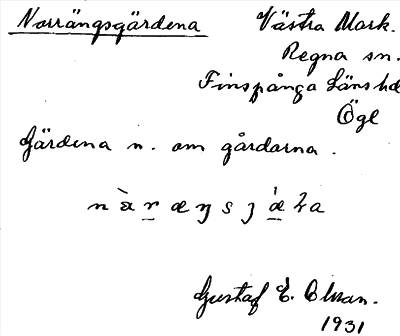 Norrängsgärdena
Västra Mark.
Regna sn.
Finspånga Länshd
Ögl
Gärdena n. om gårdarna.
Gustaf E. Olsson.
1931